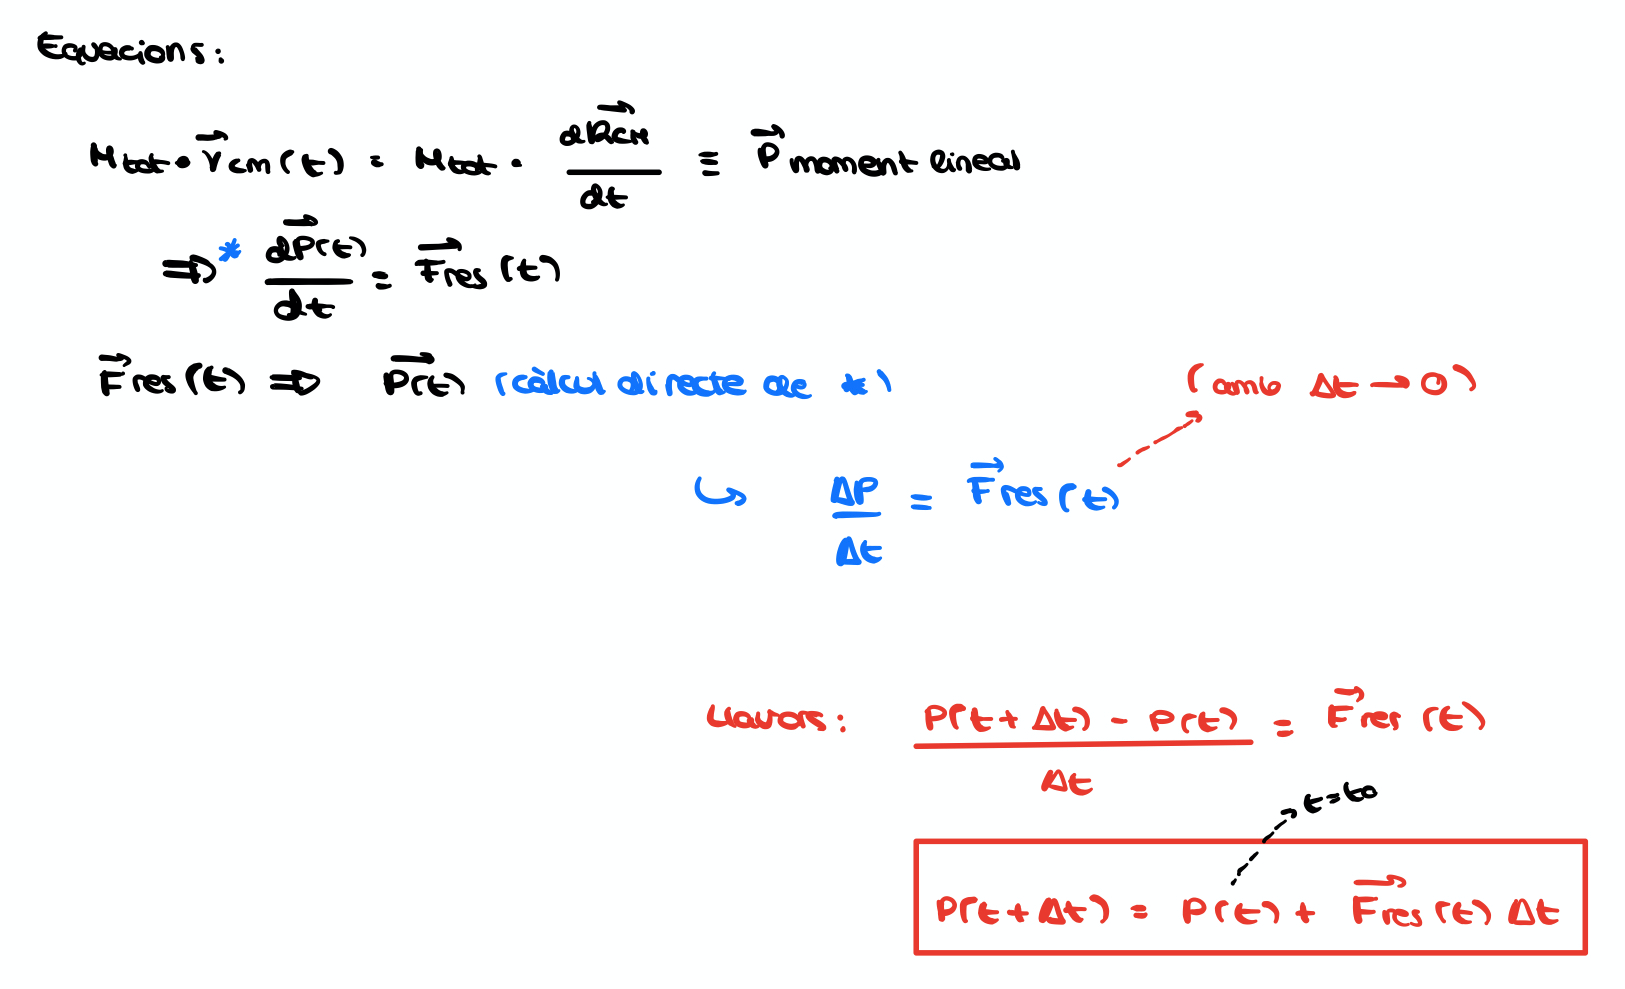 Equacions:
Mtot · V⃗cm(t) = Mtot · dR⃗cm/dt ≡ P⃗ moment lineal
⇒* dP⃗(t)/dt = F⃗res(t)
F⃗res(t) ⇒ P⃗(t) (càlcul directe de *)
(amb Δt → 0)
↪ ΔP/Δt = F⃗res(t)
Llavors: P(t + Δt) - P(t)/Δt = F⃗res(t)
t = to
P(t + Δt) = P(t) + F⃗res(t) Δt